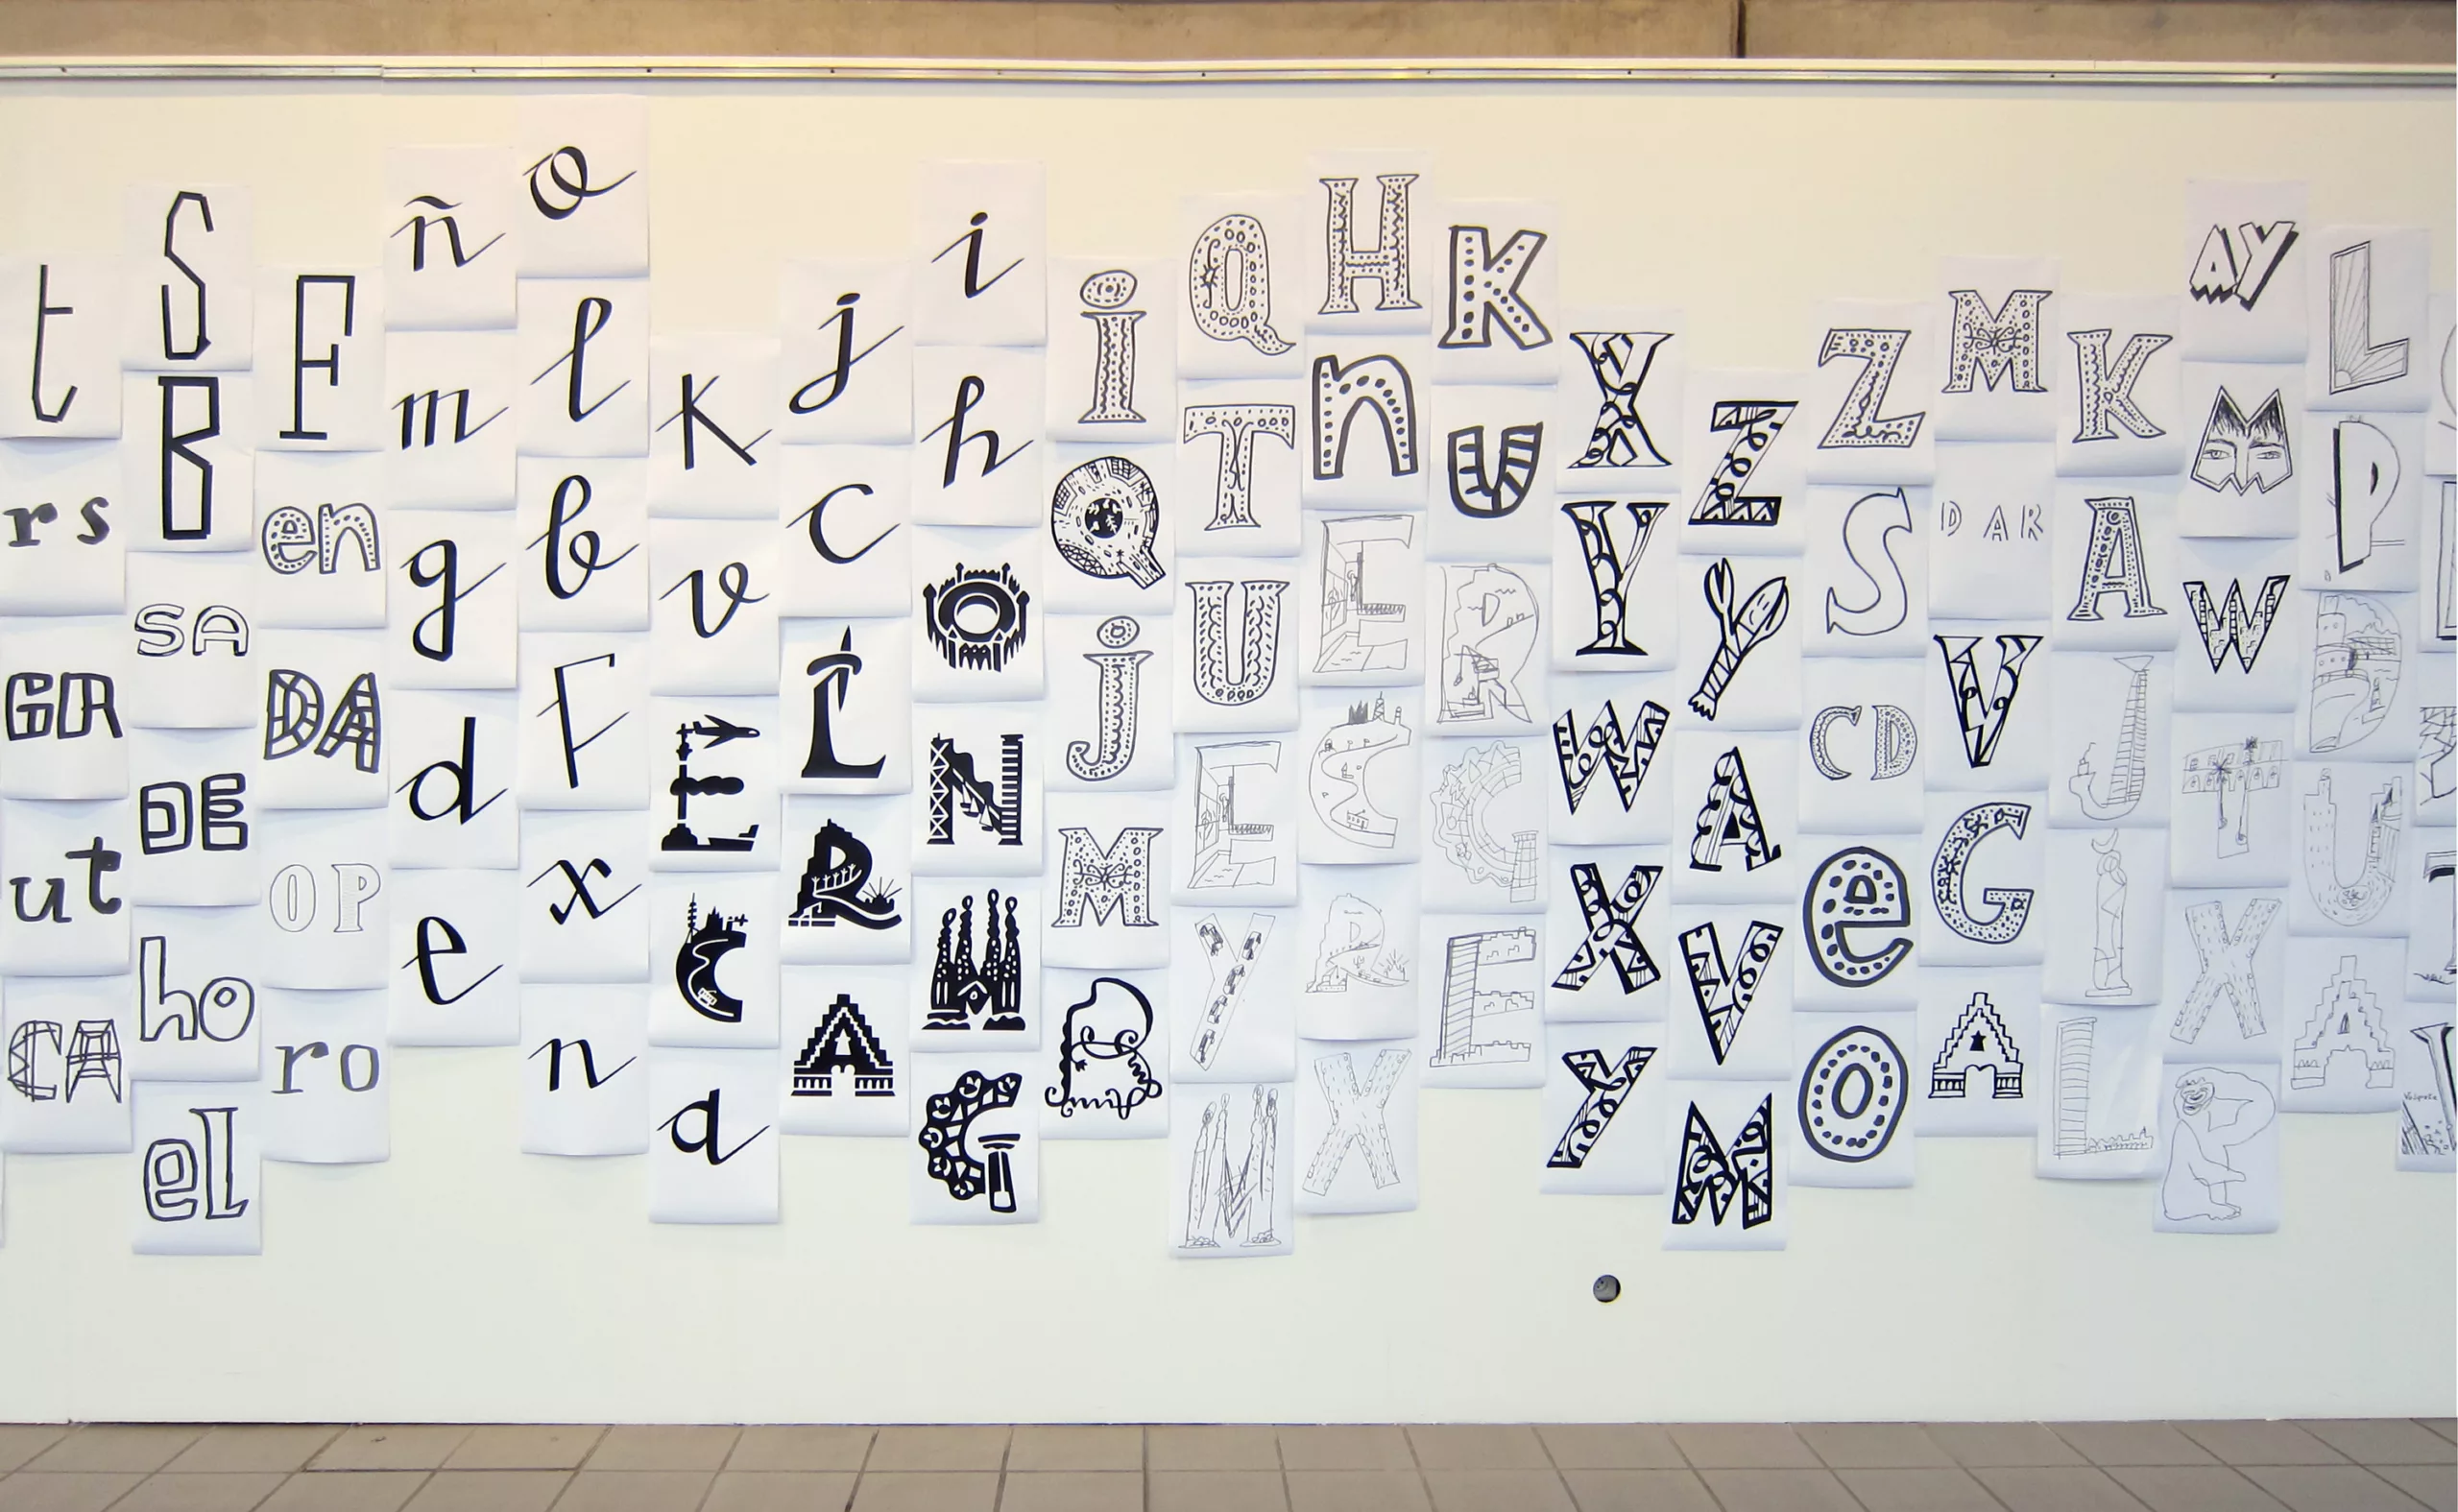 t
rs
GR
ut
CA
S
B
SA
DE
ho
el
F
en
DA
OP
ro
ñ
m
g
d
e
o
l
b
F
x
n
K
v
E
C
a
j
c
L
R
A
i
h
O
N
M
G
i
Q
j
M
R
Q
T
U
E
Y
M
H
n
E
C
R
X
K
U
R
G
E
X
Y
W
X
Y
Z
Y
A
V
M
Z
S
CD
e
O
M
DAR
V
G
A
K
A
J
I
L
AY
M
W
T
X
L
P
D
U
A